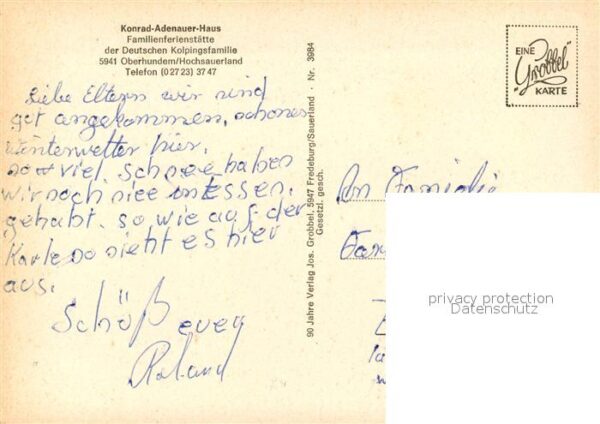 Konrad-Adenauer-Haus
Familienferienstätte
der Deutschen Kolpingsfamilie
5941 Oberhundem/Hochsauerland
Telefon (02723) 3747
Liebe Eltern wir sind
gut angekommen, schönes
winterwetter hier,
so viel schnee haben
wir noch niee in essen,
gehabt. so wie auf der
Karte so sieht es hier
aus.
Schöß euer
Roland
90 Jahre Verlag Jos. Grobbel, 5947 Fredeburg/Sauerland · Nr. 3984
Gesetzl. gesch.
EINE
"Grobbel"
KARTE
An Familie
privacy protection
Datenschutz